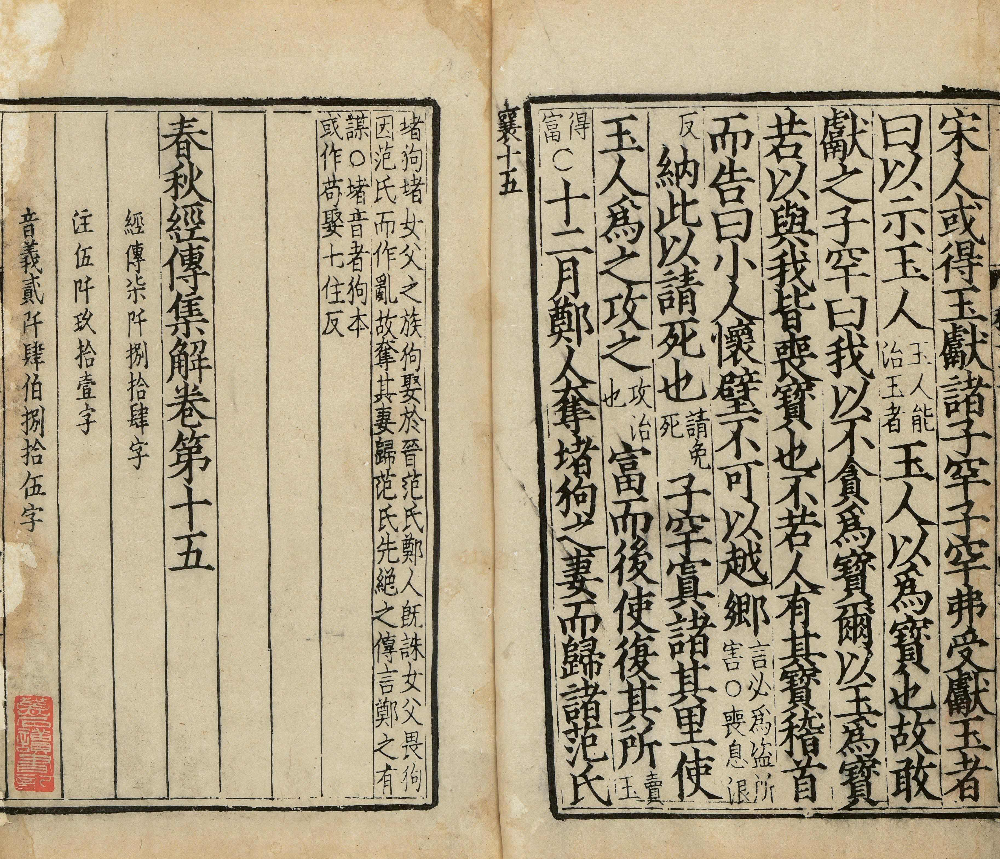 宋人或得玉獻諸子罕子罕弗受獻玉者
曰以示玉人玉人能治玉者玉人以為寶也故敢
獻之子罕曰我以不貪為寶爾以玉為寶
若以與我皆喪寶也不若人有其寶稽首
而告曰小人懷璧不可以越鄉言必為盜所害○喪息浪
反納此以請死也請免死子罕寘諸其里使
玉人為之攻之攻治也富而後使復其所賣玉
得富○十二月鄭人奪堵狗之妻而歸諸范氏
襄十五
堵狗堵女父之族狗娶於晉范氏鄭人既誅女父畏狗
因范氏而作亂故奪其妻歸范氏先絕之傳言鄭之有
謀○堵音者狗本
或作苟娶七住反
春秋經傳集解卷第十五
經傳柒阡捌拾肆字
注伍阡玖拾壹字
音義貳阡肆伯捌拾伍字